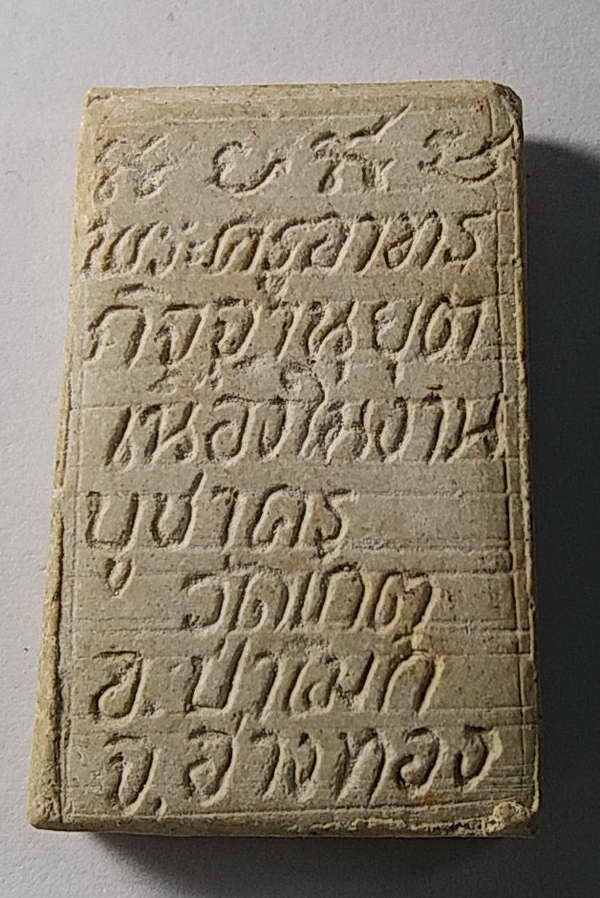 พระครูอาทร
กิจจานุยุต
เนื่องในงาน
บูชาครู
วัดเกตุ
อ.ป่าโมก
จ.อ่างทอง